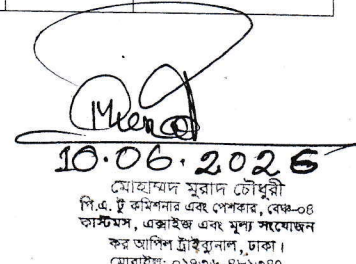 10.06.2026
মোহাম্মদ মুরাদ চৌধুরী
পি.এ. টু কমিশনার এবং পেশকার, বেঞ্চ-০৪
কাস্টমস, এক্সাইজ এবং মূল্য সংযোজন
কর আপিল ট্রাইব্যুনাল, ঢাকা।
মোবাইল: